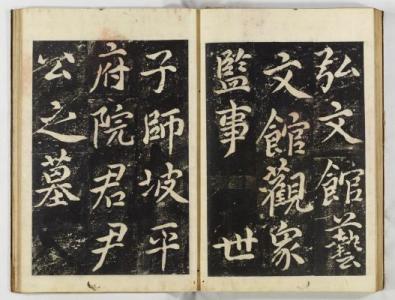 弘文館藝
文館觀象
監事 世
子師坡平
府院君尹
公之墓